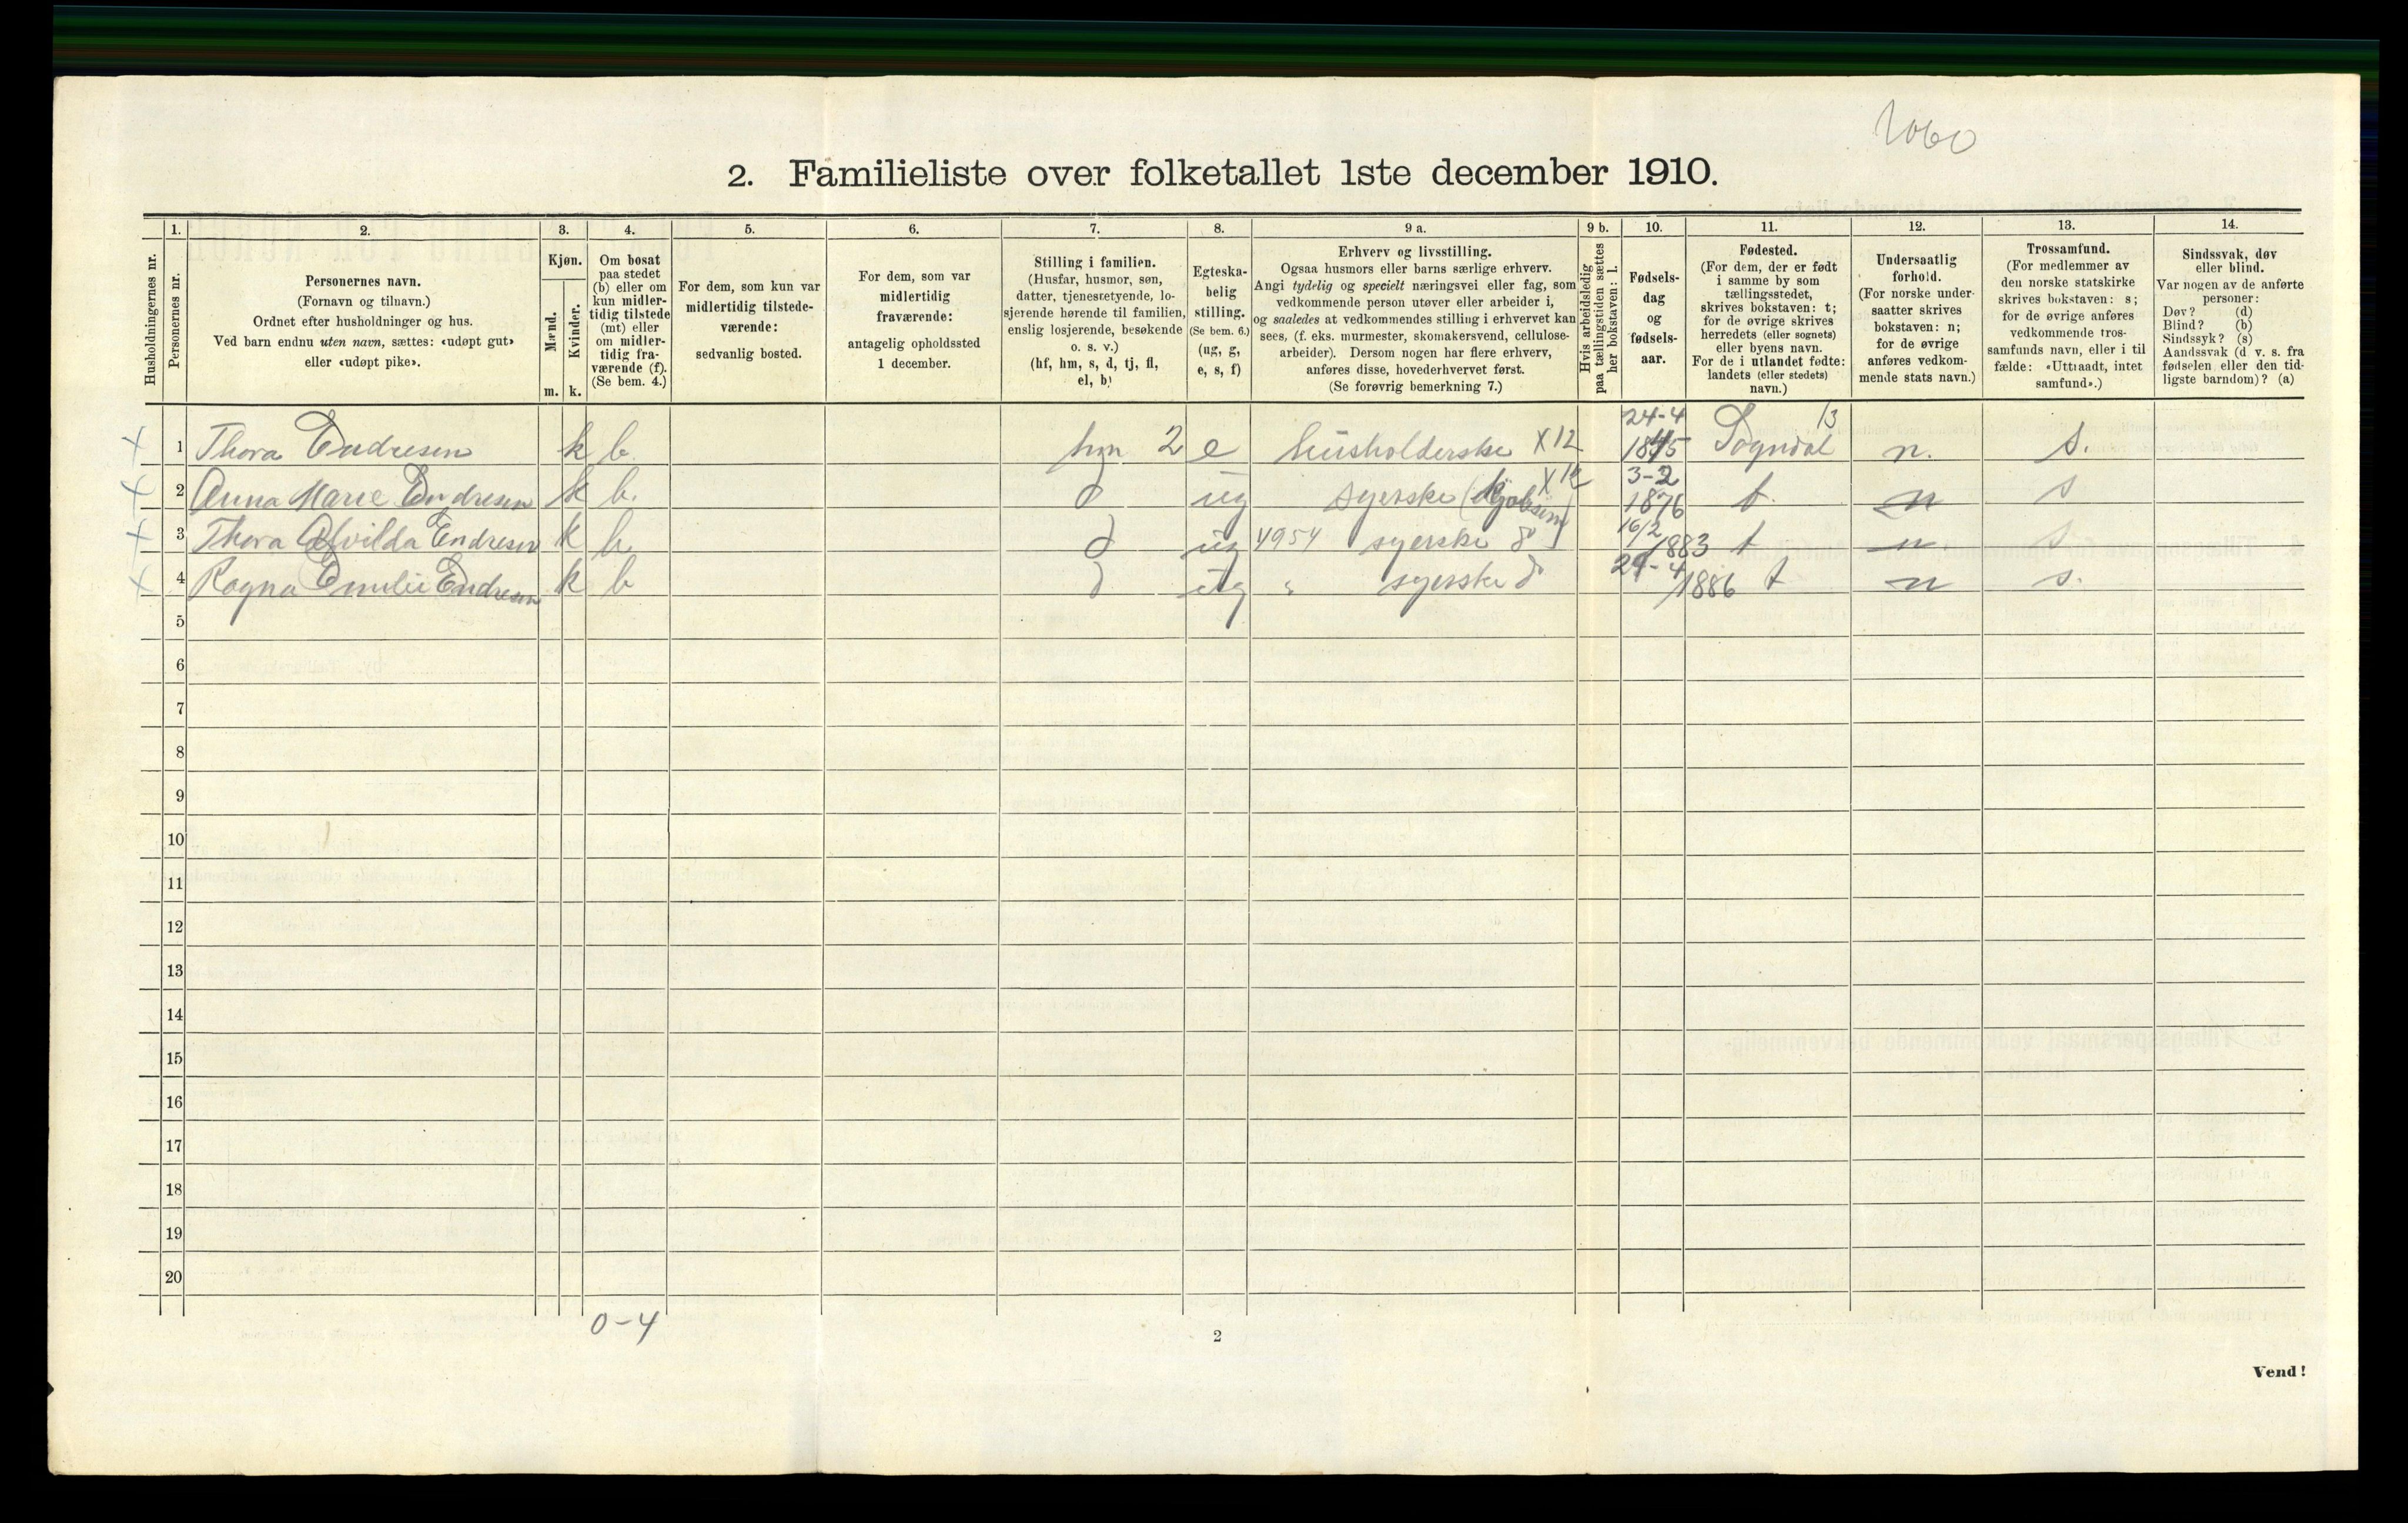 2060
2. Familieliste over folketallet 1ste december 1910.
Husholdningernes nr.
1.
Personernes nr.
2.
Personernes navn.
(Fornavn og tilnavn.)
Ordnet efter husholdninger og hus.
Ved barn endnu uten navn, sættes: «udøpt gut»
eller «udøpt pike».
3.
Kjøn.
Mænd.
Kvinder.
m. k.
4.
Om bosat
paa stedet
(b) eller om
kun midler-
tidig tilstede
(mt) eller
om midler-
tidig fra-
værende (f).
(Se bem. 4.)
5.
For dem, som kun var
midlertidig tilstede-
værende:
sedvanlig bosted.
6.
For dem, som var
midlertidig
fraværende:
antagelig opholdssted
1 december.
7.
Stilling i familien.
(Husfar, husmor, søn,
datter, tjenestetyende, lo-
sjerende hørende til familien,
enslig losjerende, besøkende
o. s. v.)
(hf, hm, s, d, tj, fl,
el, b)
8.
Egteska-
belig
stilling.
(Se bem. 6.)
(ug, g,
e, s, f)
9 a.
Erhverv og livsstilling.
Ogsaa husmors eller barns særlige erhverv.
Angi tydelig og specielt næringsvei eller fag, som
vedkommende person utøver eller arbeider i,
og saaledes at vedkommendes stilling i erhvervet kan
sees, (f. eks. murmester, skomakersvend, cellulose-
arbeider). Dersom nogen har flere erhverv,
anføres disse, hovederhvervet først.
(Se forøvrig bemerkning 7.)
9 b.
Hvis arbeidsledig
paa tællingstiden sættes
her bokstaven: l.
10.
Fødsels-
dag
og
fødsels-
aar.
11.
Fødested.
(For dem, der er født
i samme by som
tællingsstedet,
skrives bokstaven: t;
for de øvrige skrives
herredets (eller sognets)
eller byens navn.
For de i utlandet fødte:
landets (eller stedets)
navn.)
12.
Undersaatlig
forhold.
(For norske under-
saatter skrives
bokstaven: n;
for de øvrige
anføres vedkom-
mende stats navn.)
13.
Trossamfund.
(For medlemmer av
den norske statskirke
skrives bokstaven: s;
for de øvrige anføres
vedkommende tros-
samfunds navn, eller i til
fælde: «Uttraadt, intet
samfund».)
14.
Sindssvak, døv
eller blind.
Var nogen av de anførte
personer:
Døv? (d)
Blind? (b)
Sindssyk? (s)
Aandssvak (d. v. s. fra
fødselen eller den tid-
ligste barndom)? (a)
x 1 Thora Endresen k b. hm 2 e husholderske X12 24-4 1845 Sogndal 13 n. s.
x 2 Anna Marie Endresen k b. d ug syerske X12 3-2 1876 t. n s
x 3 Thora Alvilda Endresen k b. d ug 4954 syerske 8 16/2 1883 t n. s
x 4 Ragna Emilie Endresen k b d ug " syerske 8 24-4 1886 t n s.
5
6
7
8
9
10
11
12
13
14
15
16
17
18
19
20
0-4
2
Vend!